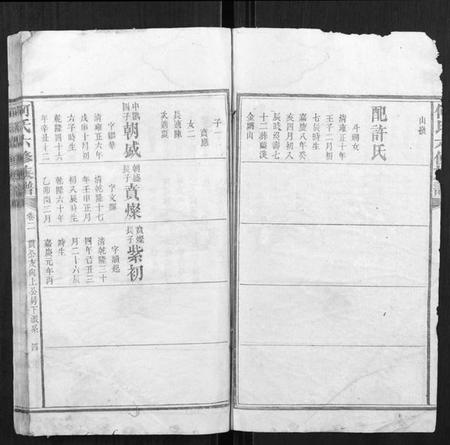 山嶺
配許氏
斗瑚女
清雍正十年
壬子二月初
七辰時生
嘉慶八年癸
亥四月初八
辰時歿壽七
十二葬
金鵝山
子一
賁應
女二
長適陳
次適袁
中鵬四子
朝盛
字聯華
清雍正六年
戊申十月初
六子時生
乾隆四十六
年辛丑十二
朝盛長子
賁燦
字文輝
清乾隆十七
年壬申正月
初八辰時生
乾隆六十年
乙卯閏二月
賁燦長子
紫初
字
清乾隆三十
四年己丑三
月二十六辰
時生
嘉慶元年丙
何氏六修族譜
卷二
貫公支向上公房下派系
四